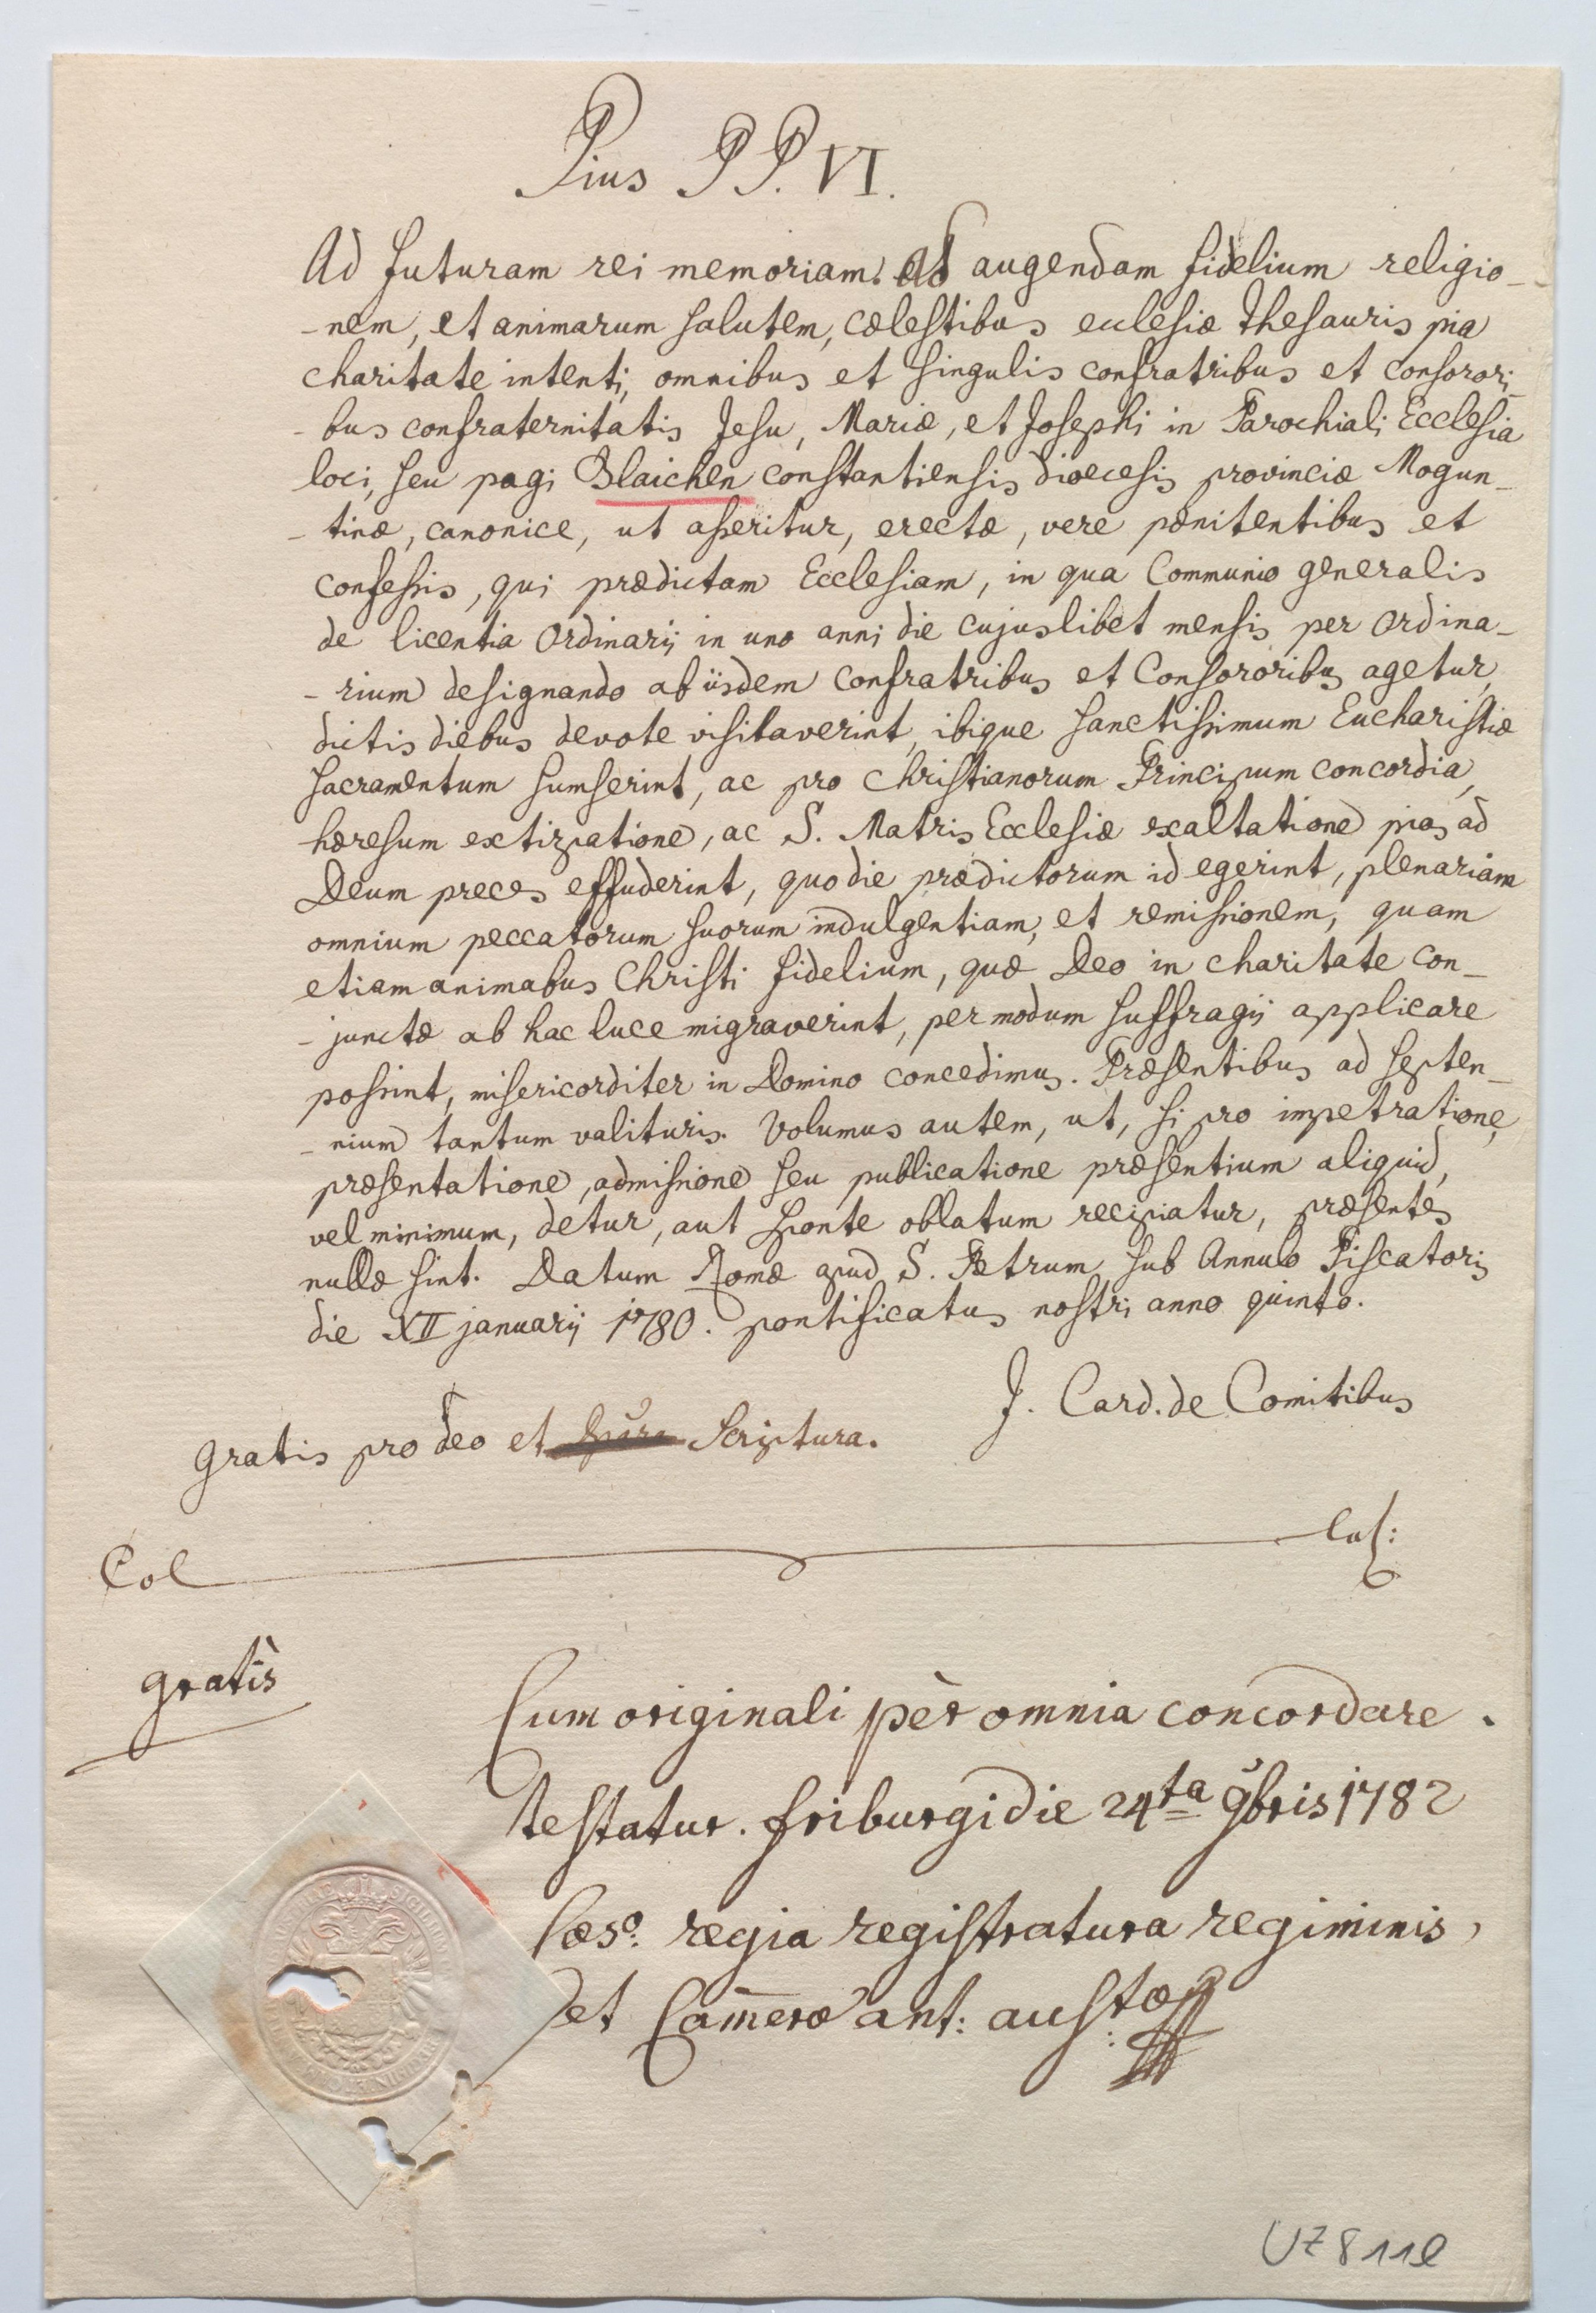 Pius PP. VI.
Ad futuram rei memoriam. Ad augendam fidelium religio-
-nem, et animarum salutem, cœlestibus ecclesiæ thesauris pia
charitate intenti, omnibus et singulis confratribus et consorori-
-bus confraternitatis Jesu, Mariæ, et Josephi in Parochiali Ecclesia
loci, seu pagi Blaichen constantiensis diœcesis provinciæ Mogun-
-tinæ, canonice, ut asseritur, erectæ, vere pœnitentibus et
confessis, qui prædictam Ecclesiam, in qua Communio generalis
de licentia Ordinarij in uno anni die cujuslibet mensis per Ordina-
-rium designando ab iisdem Confratribus et Consororibus agetur,
dictis diebus devote visitaverint, ibique sanctissimum Eucharistiæ
sacramentum sumserint, ac pro Christianorum Principum concordia,
hæresum extirpatione, ac S. Matris Ecclesiæ exaltatione pias ad
Deum preces effuderint, quo die prædictorum id egerint, plenariam
omnium peccatorum suorum indulgentiam, et remissionem, quam
etiam animabus Christi fidelium, quæ Deo in charitate con-
-junctæ ab hac luce migraverint, per modum suffragij applicare
possint, misericorditer in Domino concedimus. Præsentibus ad septen-
-nium tantum valituris. Volumus autem, ut, si pro impetratione,
præsentatione, admissione seu publicatione præsentium aliquid,
vel minimum, detur, aut sponte oblatum recipiatur, præsentes
nullæ sint. Datum Romæ apud S. Petrum sub Annulo Piscatoris
die XII januarij 1780. pontificatus nostri anno quinto.
J. Card. de Comitibus
Gratis pro deo et Scriptura.
Col Las:
gratis
Cum originali per omnia concordare.
testatur. friburgi die 24ta 9bris 1782
Cæso: regia registratura regiminis,
et Cam̄eræ ant: austæ
UZ 8 11e